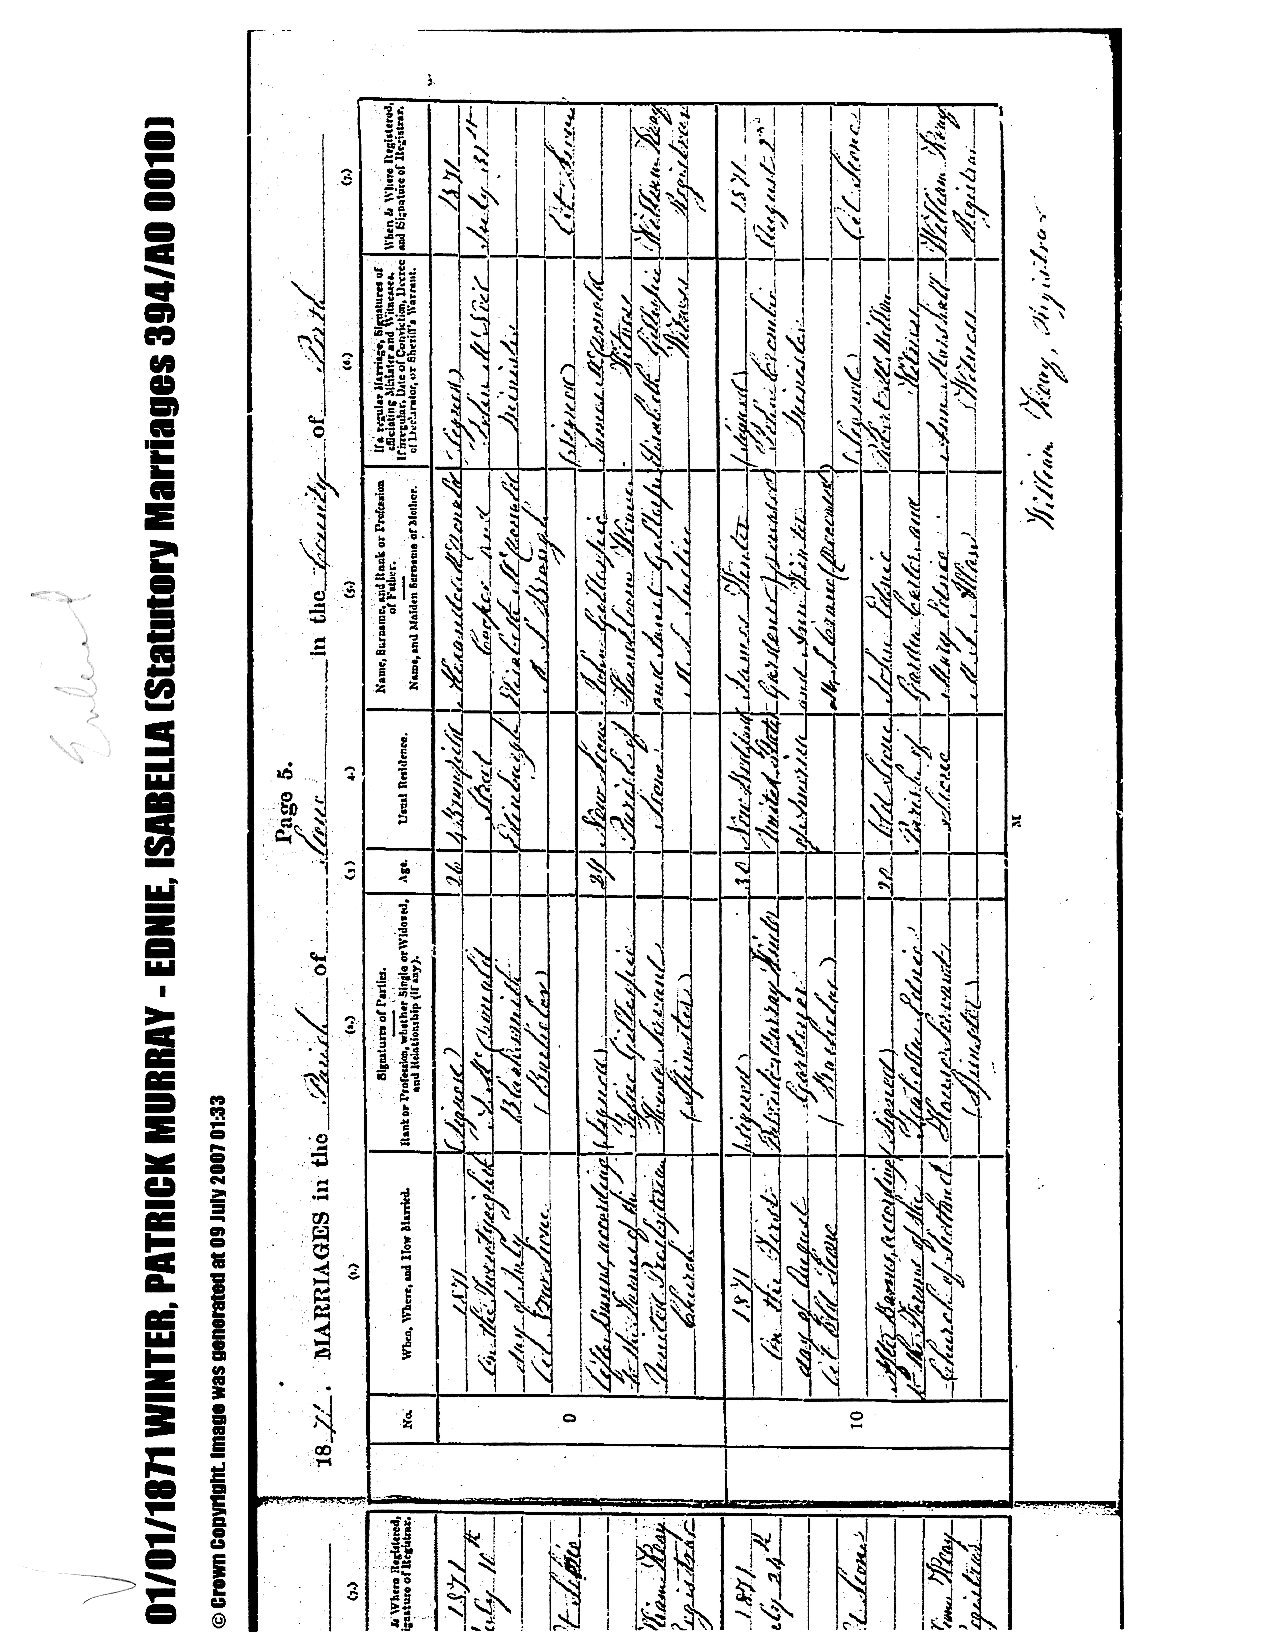 Entered
01/01/1871 WINTER, PATRICK MURRAY - EDNIE, ISABELLA (Statutory Marriages 394/A0 0010)
© Crown Copyright. Image was generated at 09 July 2007 01:33
Page 5.
1871. MARRIAGES in the Parish of Scone in the County of Perth
(1.)
(2.)
(3)
(4.)
(5.)
(6.)
(7.)
No.
When, Where, and How Married.
Signatures of Parties.
Rank or Profession, whether Single or Widowed,
and Relationship (if any).
Age.
Usual Residence.
Name, Surname, and Rank or Profession
of Father.
Name, and Maiden Surname of Mother.
If a regular Marriage, Signatures of
officiating Minister and Witnesses.
If irregular, Date of Conviction, Decree
of Declarator, or Sheriff's Warrant.
When & Where Registered,
and Signature of Registrar.
9
1871
On the Twentyeighth
day of July
At New Scone
After Banns, according
to the Forms of the
United Presbyterian
Church
(Signed)
McDonald
Blacksmith
(Bachelor)
(Signed)
Gillespie
Servant
(Spinster)
26
Street
Edinburgh
29
New Scone
Parish of
Scone
Alexander McDonald
and
Elizabeth McDonald
M.S. Brough
John Gillespie
Handloom Weaver
and Janet Gillespie
M.S.
(Signed)
Minister
(Signed)
James McDonald
Witness
Elizabeth Gillespie
Witness
1871
July 31st
At Scone
William Kay
Registrar
10
1871
On the First
day of August
At Old Scone
After Banns, according
to the Forms of the
Church of Scotland
(Signed)
Patrick Murray Winter
Gardener
(Bachelor)
(Signed)
Isabella Ednie
House Servant
(Spinster)
30
New Bedford
United States
of America
20
Old Scone
Parish of
Scone
James Winter
Gardener (deceased)
and Ann Winter
M.S. (deceased)
John Ednie
Garden Carter, and
Mary Ednie
M.S. Allan
(Signed)
Minister
(Signed)
Robert
Witness
Ann Marshall
Witness
1871
August 2nd
At Scone
William Kay
Registrar
M
William Kay, Registrar
(7.)
& Where Registered,
Signature of Registrar.
1871
July 10th
At Scone
William Kay
Registrar
1871
July 24th
At Scone
William Kay
Registrar